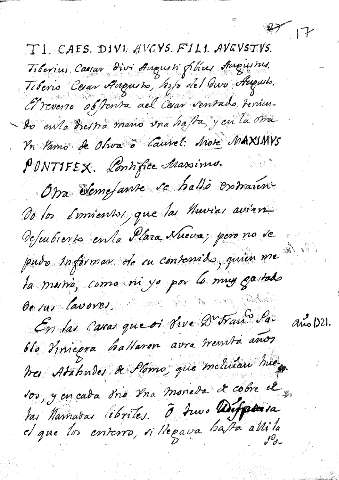 17
TI. CAES. DIVI. AUGUS. FILI. AVGVSTVS.
Tiberius Caesar divi Augusti filius Augustus.
Tiberio Cesar Augusto, hijo del Divo Augusto.
El reverso obstenta al Cesar sentado, tenien-
do en la diestra mano una hasta, y en la otra
un ramo de Oliva o Laurel: Mote MAXIMVS
PONTIFEX. Pontifice Maximo.
Otra semejante se halló extraien-
do los simientos, que las lluvias avian
descubierto en la Plaza Nueva, pero no se
pudo informar de su contenido, quien me
la mostró, como ni yo por lo muy gastado
de sus lavores.
En las Casas que oi vive Dn. Franco. Pa-
blo hallaron avra treinta años
tres Atahudes de Plomo, que incluian hue-
sos, y en cada uno una moneda de cobre el
las llamadas O tuvo
el que los enterró, si llegava hasta alli la
Año 1321.